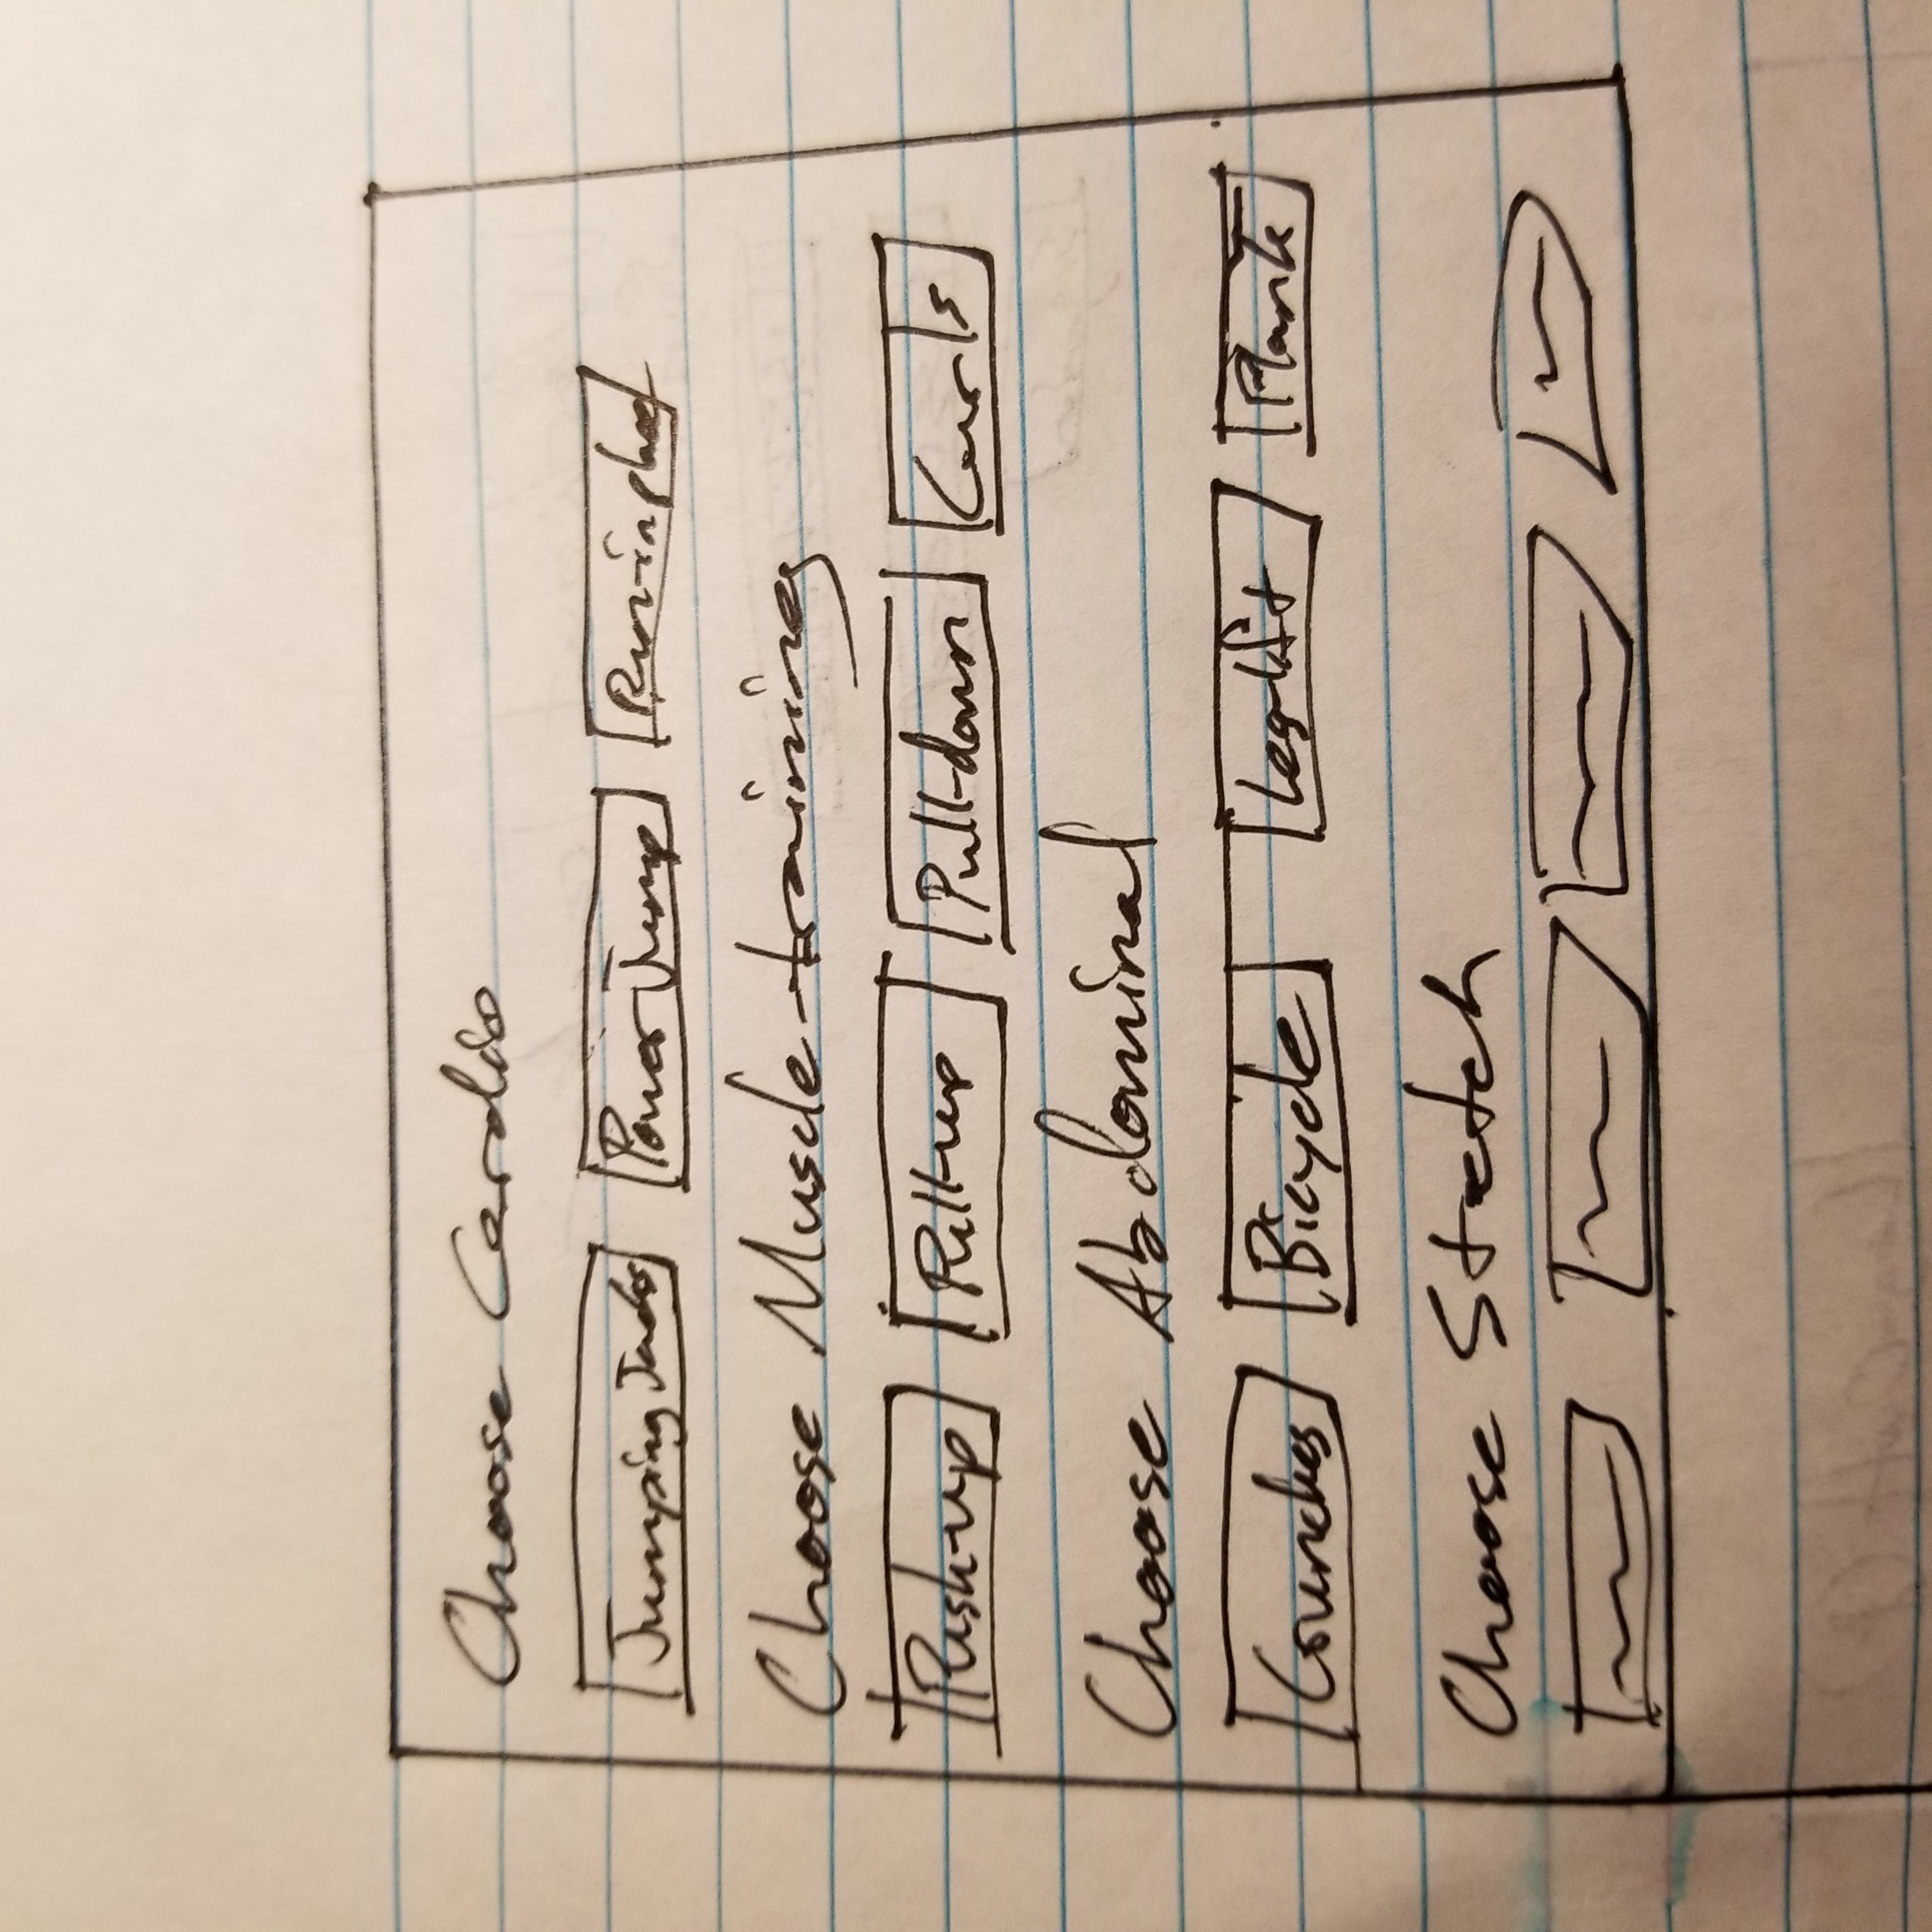 Choose Cardio
Jumping Jacks Power Jump Run-in place
Choose Muscle-training
Push-up Pull-up Pull-down Curls
Choose Abdominal
Crunches Bicycle Leg-lift Plank
Choose Stretch